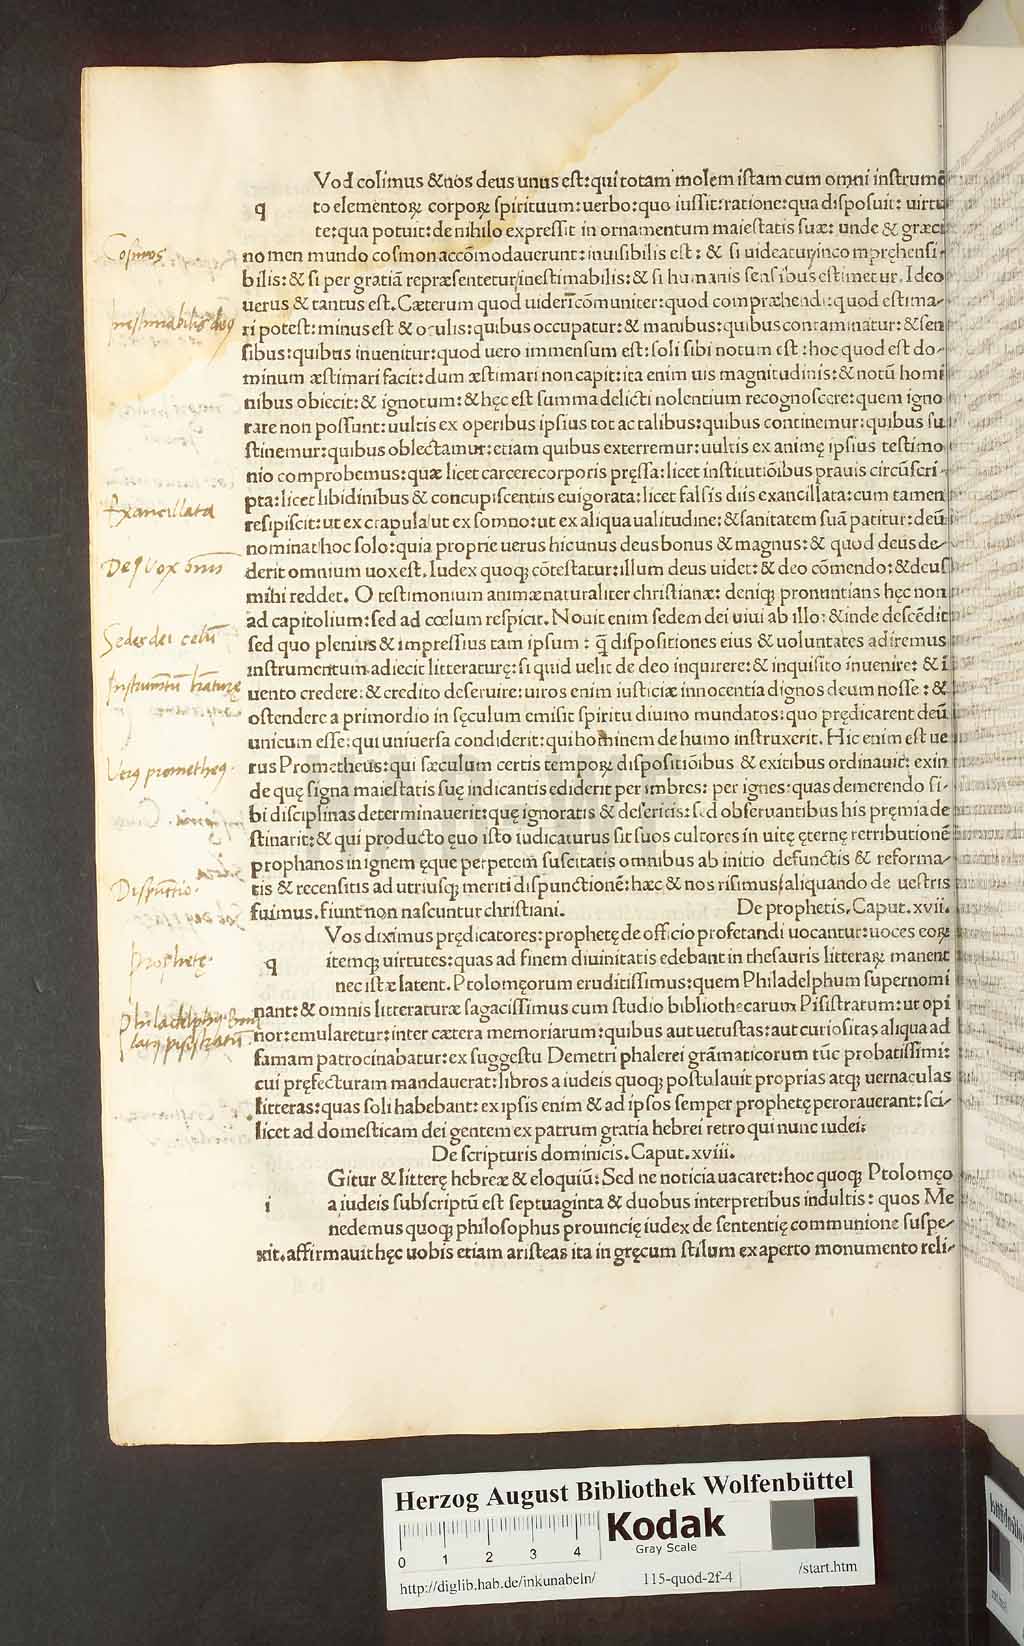 Vod colimus & nos deus unus est: qui totam molem istam cum omni instrumē
q
to elementoꝝ corpoꝝ spirituum: uerbo: quo iussit: ratione: qua disposuit: uirtu
te: qua potuit: de nihilo expressit in ornamentum maiestatis suæ: unde & græci
Cosmos
nomen mundo cosmon accōmodauerunt: inuisibilis est: & si uideatur/incomprehensi-
bilis: & si per gratiā repræsentetur/inestimabilis: & si humanis sensibus estimetur. Ideo
uerus & tantus est. Cæterum quod uideri cōmuniter: quod compræhendi: quod estima-
Inestimabilis deꝰ
ri potest: minus est & oculis: quibus occupatur: & manibus: quibus contaminatur: & sen
sibus: quibus inuenitur: quod uero immensum est: soli sibi notum est: hoc quod est do-
minum æstimari facit: dum æstimari non capit: ita enim uis magnitudinis: & notū homi
nibus obiecit: & ignotum: & hęc est summa delicti nolentium recognoscere: quem igno
rare non possunt: uultis ex operibus ipsius tot ac talibus: quibus continemur: quibus su
stinemur: quibus oblectamur: etiam quibus exterremur: uultis ex animę ipsius testimo
nio comprobemus: quæ licet carcere corporis pręssa: licet institutiōibus prauis circūscri-
pta: licet libidinibus & concupiscentiis euigorata: licet falsis diis exancillata: cum tamen
Exancillata
resipiscit: ut ex crapula/ut ex somno: ut ex aliqua ualitudine: & sanitatem suā patitur: deū
nominat/hoc solo: quia proprie uerus hic unus deus bonus & magnus: & quod deus de-
Deꝰ vox oīm
derit omnium uox est. Iudex quoqꝫ cōtestatur: illum deus uidet: & deo cōmendo: & deus
mihi reddet. O testimonium animæ naturaliter christianæ: deniqꝫ pronuntians hęc non
ad capitolium: sed ad cœlum respicit. Nouit enim sedem dei uiui ab illo: & inde descēdit
Sedes dei celū
sed quo plenius & impressius tam ipsum: ꝗ̄ dispositiones eius & uoluntates adiremus
instrumentum adiecit litteraturę: si quid uelit de deo inquirere: & inquisito inuenire: & ī
Instrumētū lr̄aturę
uento credere: & credito deseruire: uiros enim iusticiæ innocentia dignos deum nosse: &
ostendere a primordio in sęculum emisit spiritu diuino mundatos: quo prędicarent deū
unicum esse: qui uniuersa condiderit: qui hominem de humo instruxerit. Hic enim est ue
Verꝰ prometheꝰ.
rus Prometheus: qui sæculum certis tempoꝝ dispositiōibus & exitibus ordinauit: exin
de quę signa maiestatis suę indicantis ediderit per imbres: per ignes: quas demerendo si-
bi disciplinas determinauerit: quę ignoratis & desertis: sed obseruantibus his pręmia de
stinarit: & qui producto ęuo isto iudicaturus sit suos cultores in uitę ęternę retributionē
prophanos in ignem ęque perpetem suscitatis omnibus ab initio defunctis & reforma-
Dispūctio.
tis & recensitis ad utriusqꝫ meriti dispunctionē: hæc & nos risimus/aliquando de uestris
fuimus. fiunt non nascuntur christiani. De prophetis. Caput. xvii.
Vos diximus prędicatores: prophetę de officio profetandi uocantur: uoces eoꝝ
q
Prophetę.
itemqꝫ uirtutes: quas ad finem diuinitatis edebant in thesauris litteraꝝ manent
nec istæ latent. Ptolomęorum eruditissimus: quem Philadelphum supernomi
Philadelphꝰ
nant: & omnis litteraturæ sagacissimus cum studio bibliothecarum Pisistratum: ut opi
latꝰ pisistratū.
nor: emularetur: inter cætera memoriarum: quibus aut uetustas: aut curiositas aliqua ad
famam patrocinabatur: ex suggestu Demetri phalerei grāmaticorum tūc probatissimi:
cui pręfecturam mandauerat: libros a iudeis quoqꝫ postulauit proprias atqꝫ uernaculas
litteras: quas soli habebant: ex ipsis enim & ad ipsos semper prophetę perorauerant: sci-
licet ad domesticam dei gentem ex patrum gratia hebrei retro qui nunc iudei:
De scripturis dominicis. Caput. xviii.
Gitur & litterę hebreæ & eloquiū: Sed ne noticia uacaret: hoc quoqꝫ Ptolomęo
i
a iudeis subscriptū est septuaginta & duobus interpretibus indultis: quos Me
nedemus quoqꝫ philosophus prouincię iudex de sententię communione suspe-
xit. affirmauit hęc uobis etiam aristeas ita in gręcum stilum ex aperto monumento reli-
Herzog August Bibliothek Wolfenbüttel
Kodak
Gray Scale
0 1 2 3 4
http://diglib.hab.de/inkunabeln/ 115-quod-2f-4 /start.htm